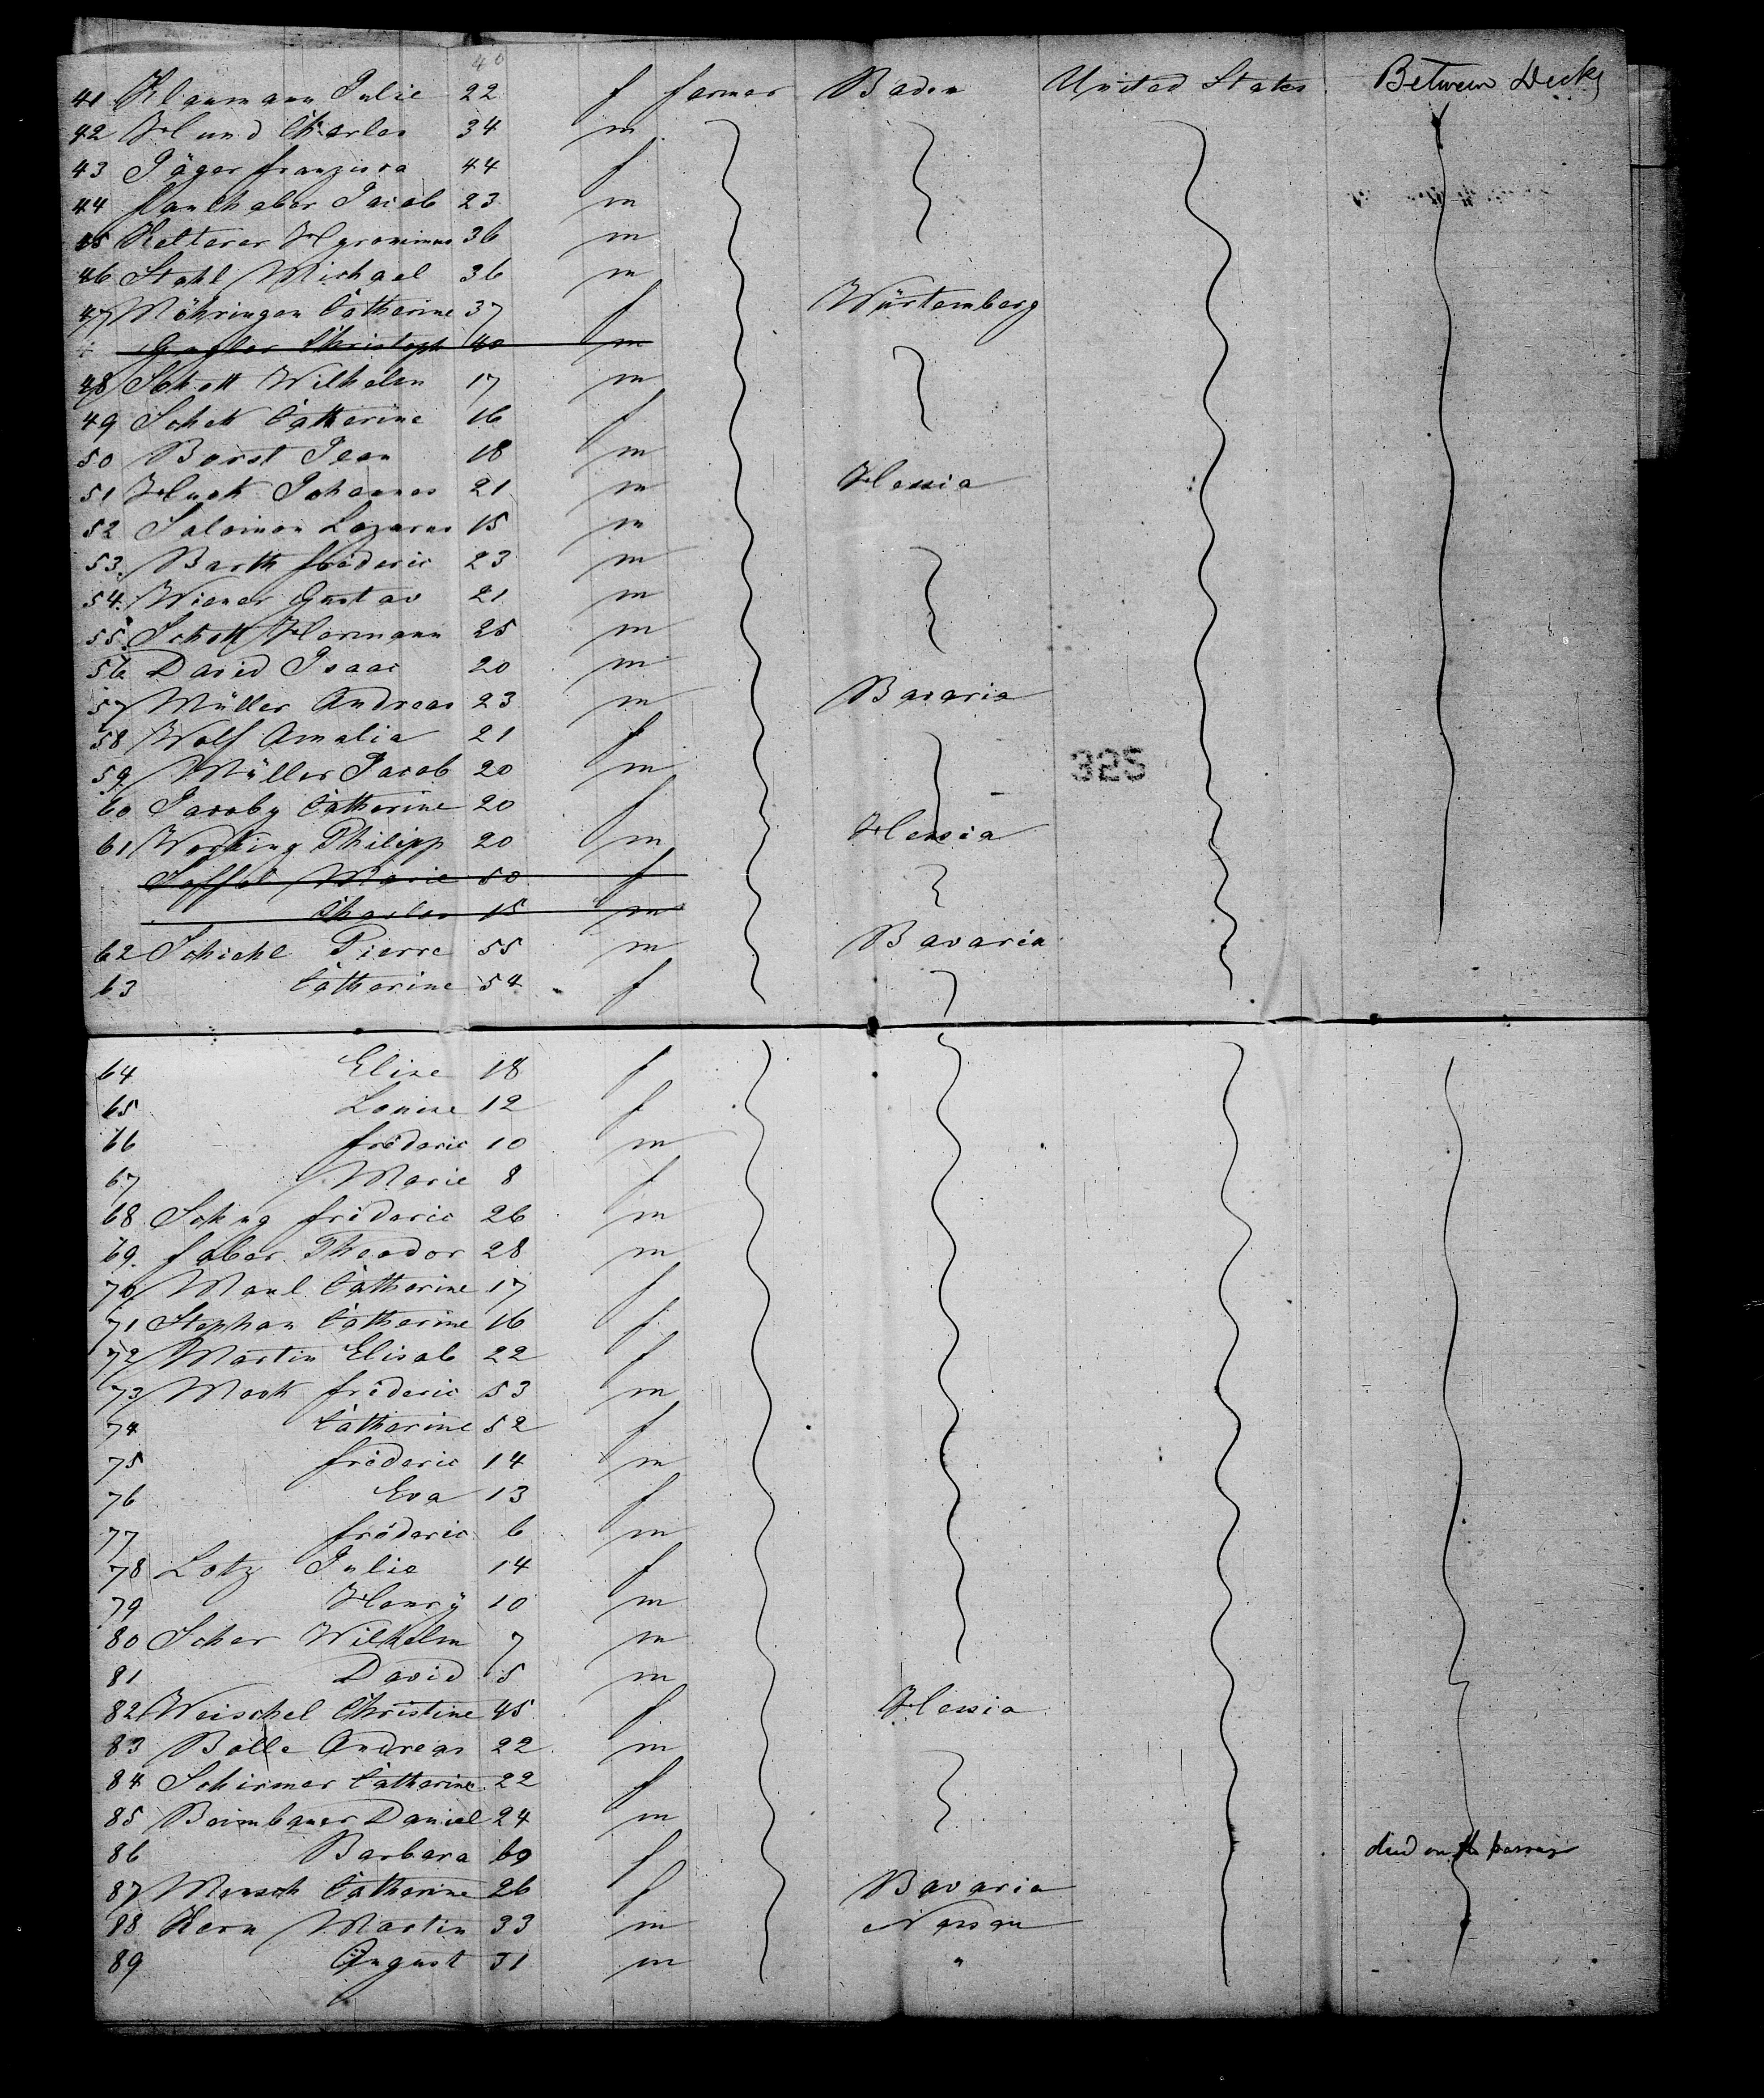 40
41 Klaumann Julie 22 f farmer Baden United States Between Decks
42 Hund Charles 34 m
43 Jäger franzisca 44 f
44 faulhaber Jacob 23 m
45 Ketterer Hyronimus 36 m
46 Stahl Michael 36 m
47 Möhringen Catherine 37 f Würtemberg
Christoph 40 m
48 Schott Wilhelm 17 m
49 Schott Catherine 16 f
50 Borst Jean 18 m
51 Huck Johannes 21 m Hessia
52 Salomon Lazarus 15 m
53. Barth fréderic 23 m
54. Wiener Gustav 21 m
55. Schott Hermann 25 m
56 David Isaac 20 m
57 Müller Andreas 23 m Bavaria
58 Wolf Amalia 21 f
59 Müller Jacob 20 m
325
60 Jacoby Catherine 20 f
61 Philipp 20 m Hessia
Marie 50 f
Charles 15 m
62 Schiehl Pierre 55 m Bavaria
63 Catherine 54 f
64 Elise 18 f
65 Louise 12 f
66 fréderic 10 m
67 Marie 8 f
68 Schug fréderic 26 m
69. faber Theodor 28 m
70 Maul Catherine 17 f
71 Stephan Catherine 16 f
72 Martin Elisab 22 f
73 Mook fréderic 53 m
74 Catharine 52 f
75 fréderic 14 m
76 Eva 13 f
77 fréderic 6 m
78 Lotz Julie 14 f
79 Henry 10 m
80 Scher Wilhelm 7 m
81 David 5 m
82 Weischel Christine 45 f Hessia
83 Bolle Andreas 22 m
84 Schirmer Catherine 22 f
85 Beimbauer Daniel 24 m
86 Barbara 69 f died on the passage
87 Mensch Catherine 26 f Bavaria
88 Kern Martin 33 m Nassau
89 August 31 m "